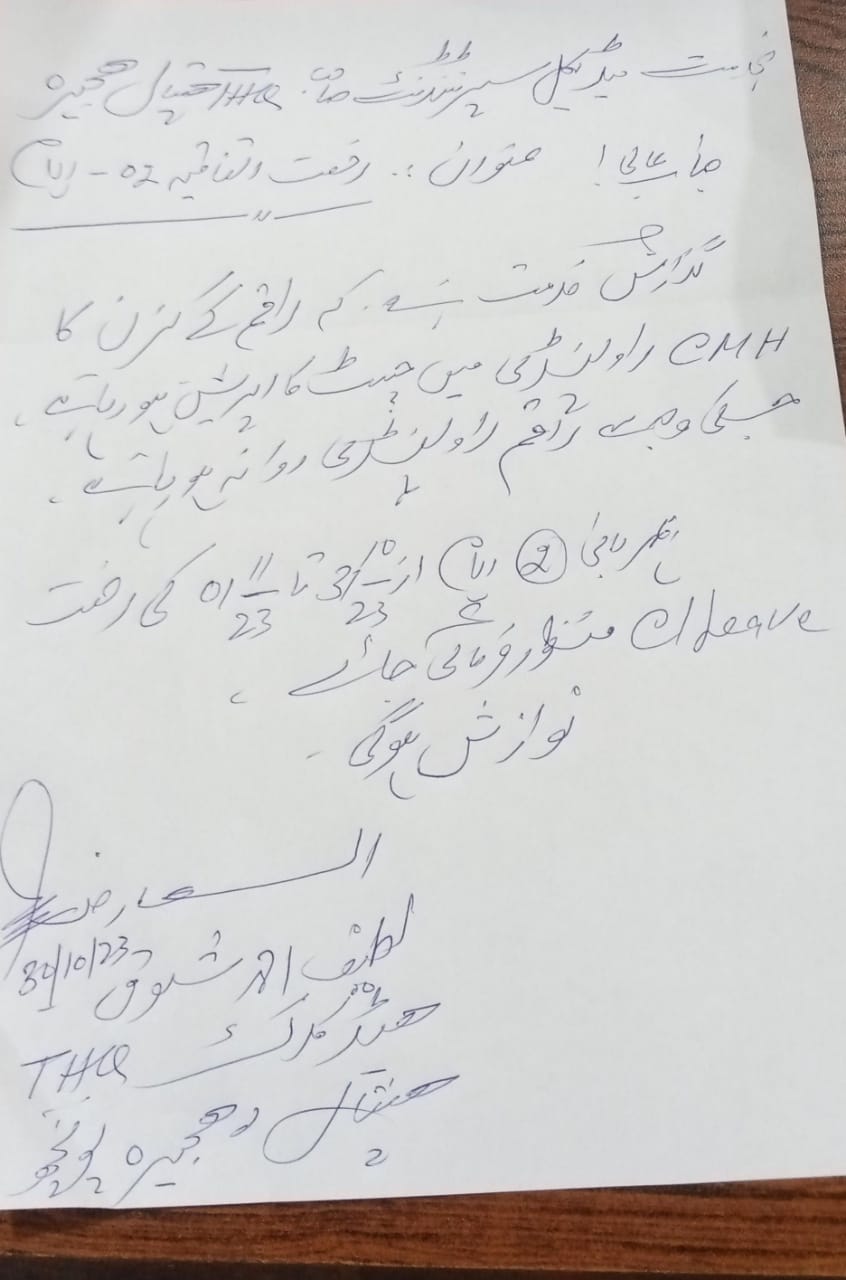 بخدمت میڈیکل سپرنٹنڈنٹ صاحب THQ ہسپتال ہجیرہ
جناب عالی! عنوان :۔ رخصت اتفاقیہ 02 - یوم
گذارش خدمت ہے کہ راقم کے کزن کا
CMH راولپنڈی میں پیٹ کا اپریشن ہو رہا ہے ۔
جسکی وجہ سے راقم راولپنڈی روانہ ہو رہا ہے ۔
بمہربانی 2 یوم از 31/10/23 تا 01/11/23 کی رخصت
C/leave منظور فرمائی جائے ۔
نوازش ہوگی ۔
العارض
لطیف احمد شوق 30/10/23
ہیڈ کلرک THQ
ہسپتال ہجیرہ پونچھ